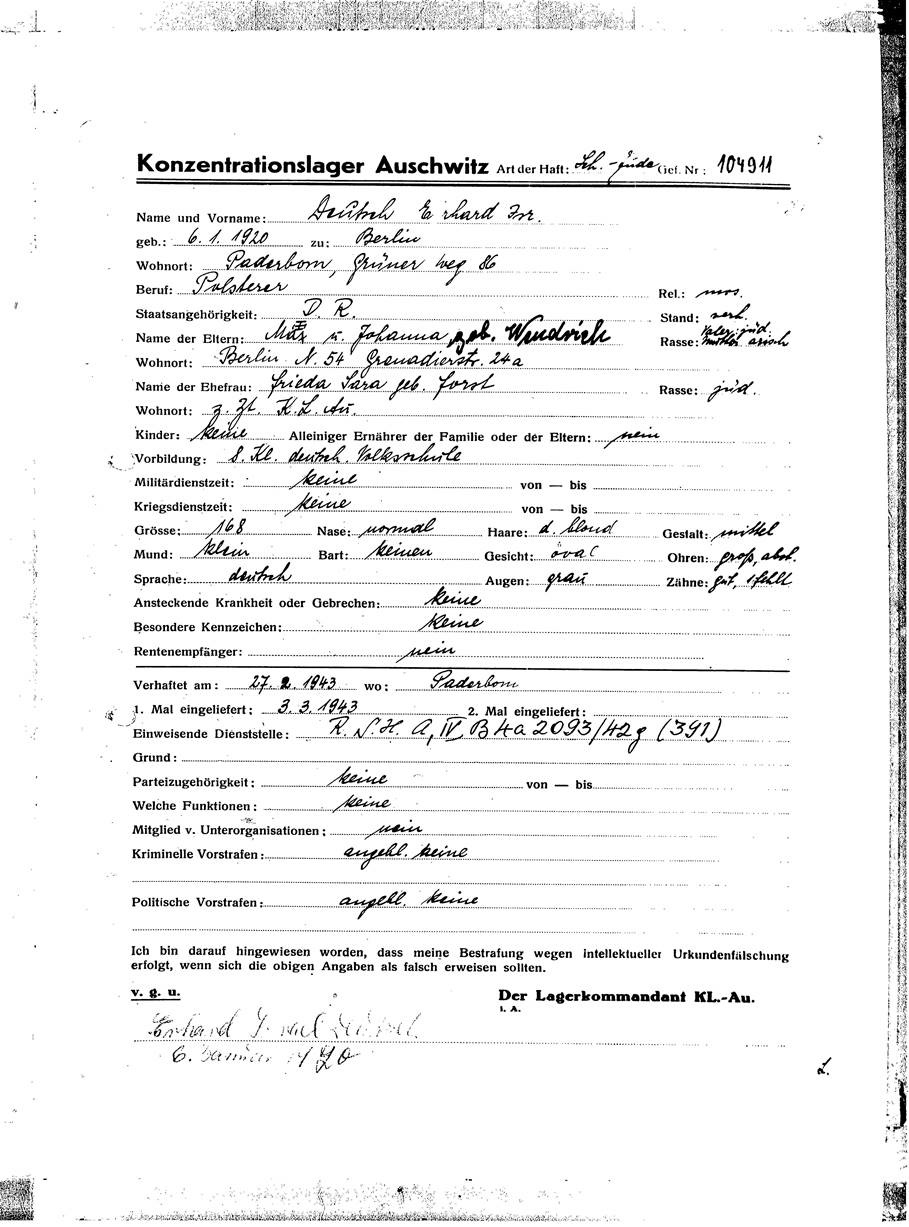 Konzentrationslager Auschwitz Art der Haft: Sch.-Jude Gef. Nr: 104911
Name und Vorname: Deutsch Erhard Isr.
geb.: 6. 1. 1920 zu: Berlin
Wohnort: Paderborn, Grüner Weg 86
Beruf: Polsterer Rel.: mos.
Staatsangehörigkeit: D. R. Stand: verh.
Name der Eltern: Max u. Johanna, geb. Wendrich Rasse: Vater: jüd. Mutter arisch
Wohnort: Berlin N. 54 Grenadierstr. 24a
Name der Ehefrau: Frieda Sara geb. Forst Rasse: jüd.
Wohnort: z. Zt. K. L. Au.
Kinder: keine Alleiniger Ernährer der Familie oder der Eltern: nein
Vorbildung: 8. Kl. deutsch. Volksschule
Militärdienstzeit: keine von — bis
Kriegsdienstzeit: keine von — bis
Grösse: 168 Nase: normal Haare: d. blond Gestalt: mittel
Mund: klein Bart: keinen Gesicht: oval Ohren: groß, abst.
Sprache: deutsch Augen: grau Zähne: gut, 1 fehlt
Ansteckende Krankheit oder Gebrechen: keine
Besondere Kennzeichen: keine
Rentenempfänger: nein
Verhaftet am: 27. 2. 1943 wo: Paderborn
1. Mal eingeliefert: 3. 3. 1943 2. Mal eingeliefert:
Einweisende Dienststelle: R. S. H. A, IV B 4a 2093/42g (391)
Grund:
Parteizugehörigkeit: keine von — bis
Welche Funktionen: keine
Mitglied v. Unterorganisationen: nein
Kriminelle Vorstrafen: angebl. keine
Politische Vorstrafen: angebl. keine
Ich bin darauf hingewiesen worden, dass meine Bestrafung wegen intellektueller Urkundenfälschung
erfolgt, wenn sich die obigen Angaben als falsch erweisen sollten.
v. g. u. Der Lagerkommandant KL.-Au.
i. A.
Erhard Israel Deutsch
6. Januar 1920
L.